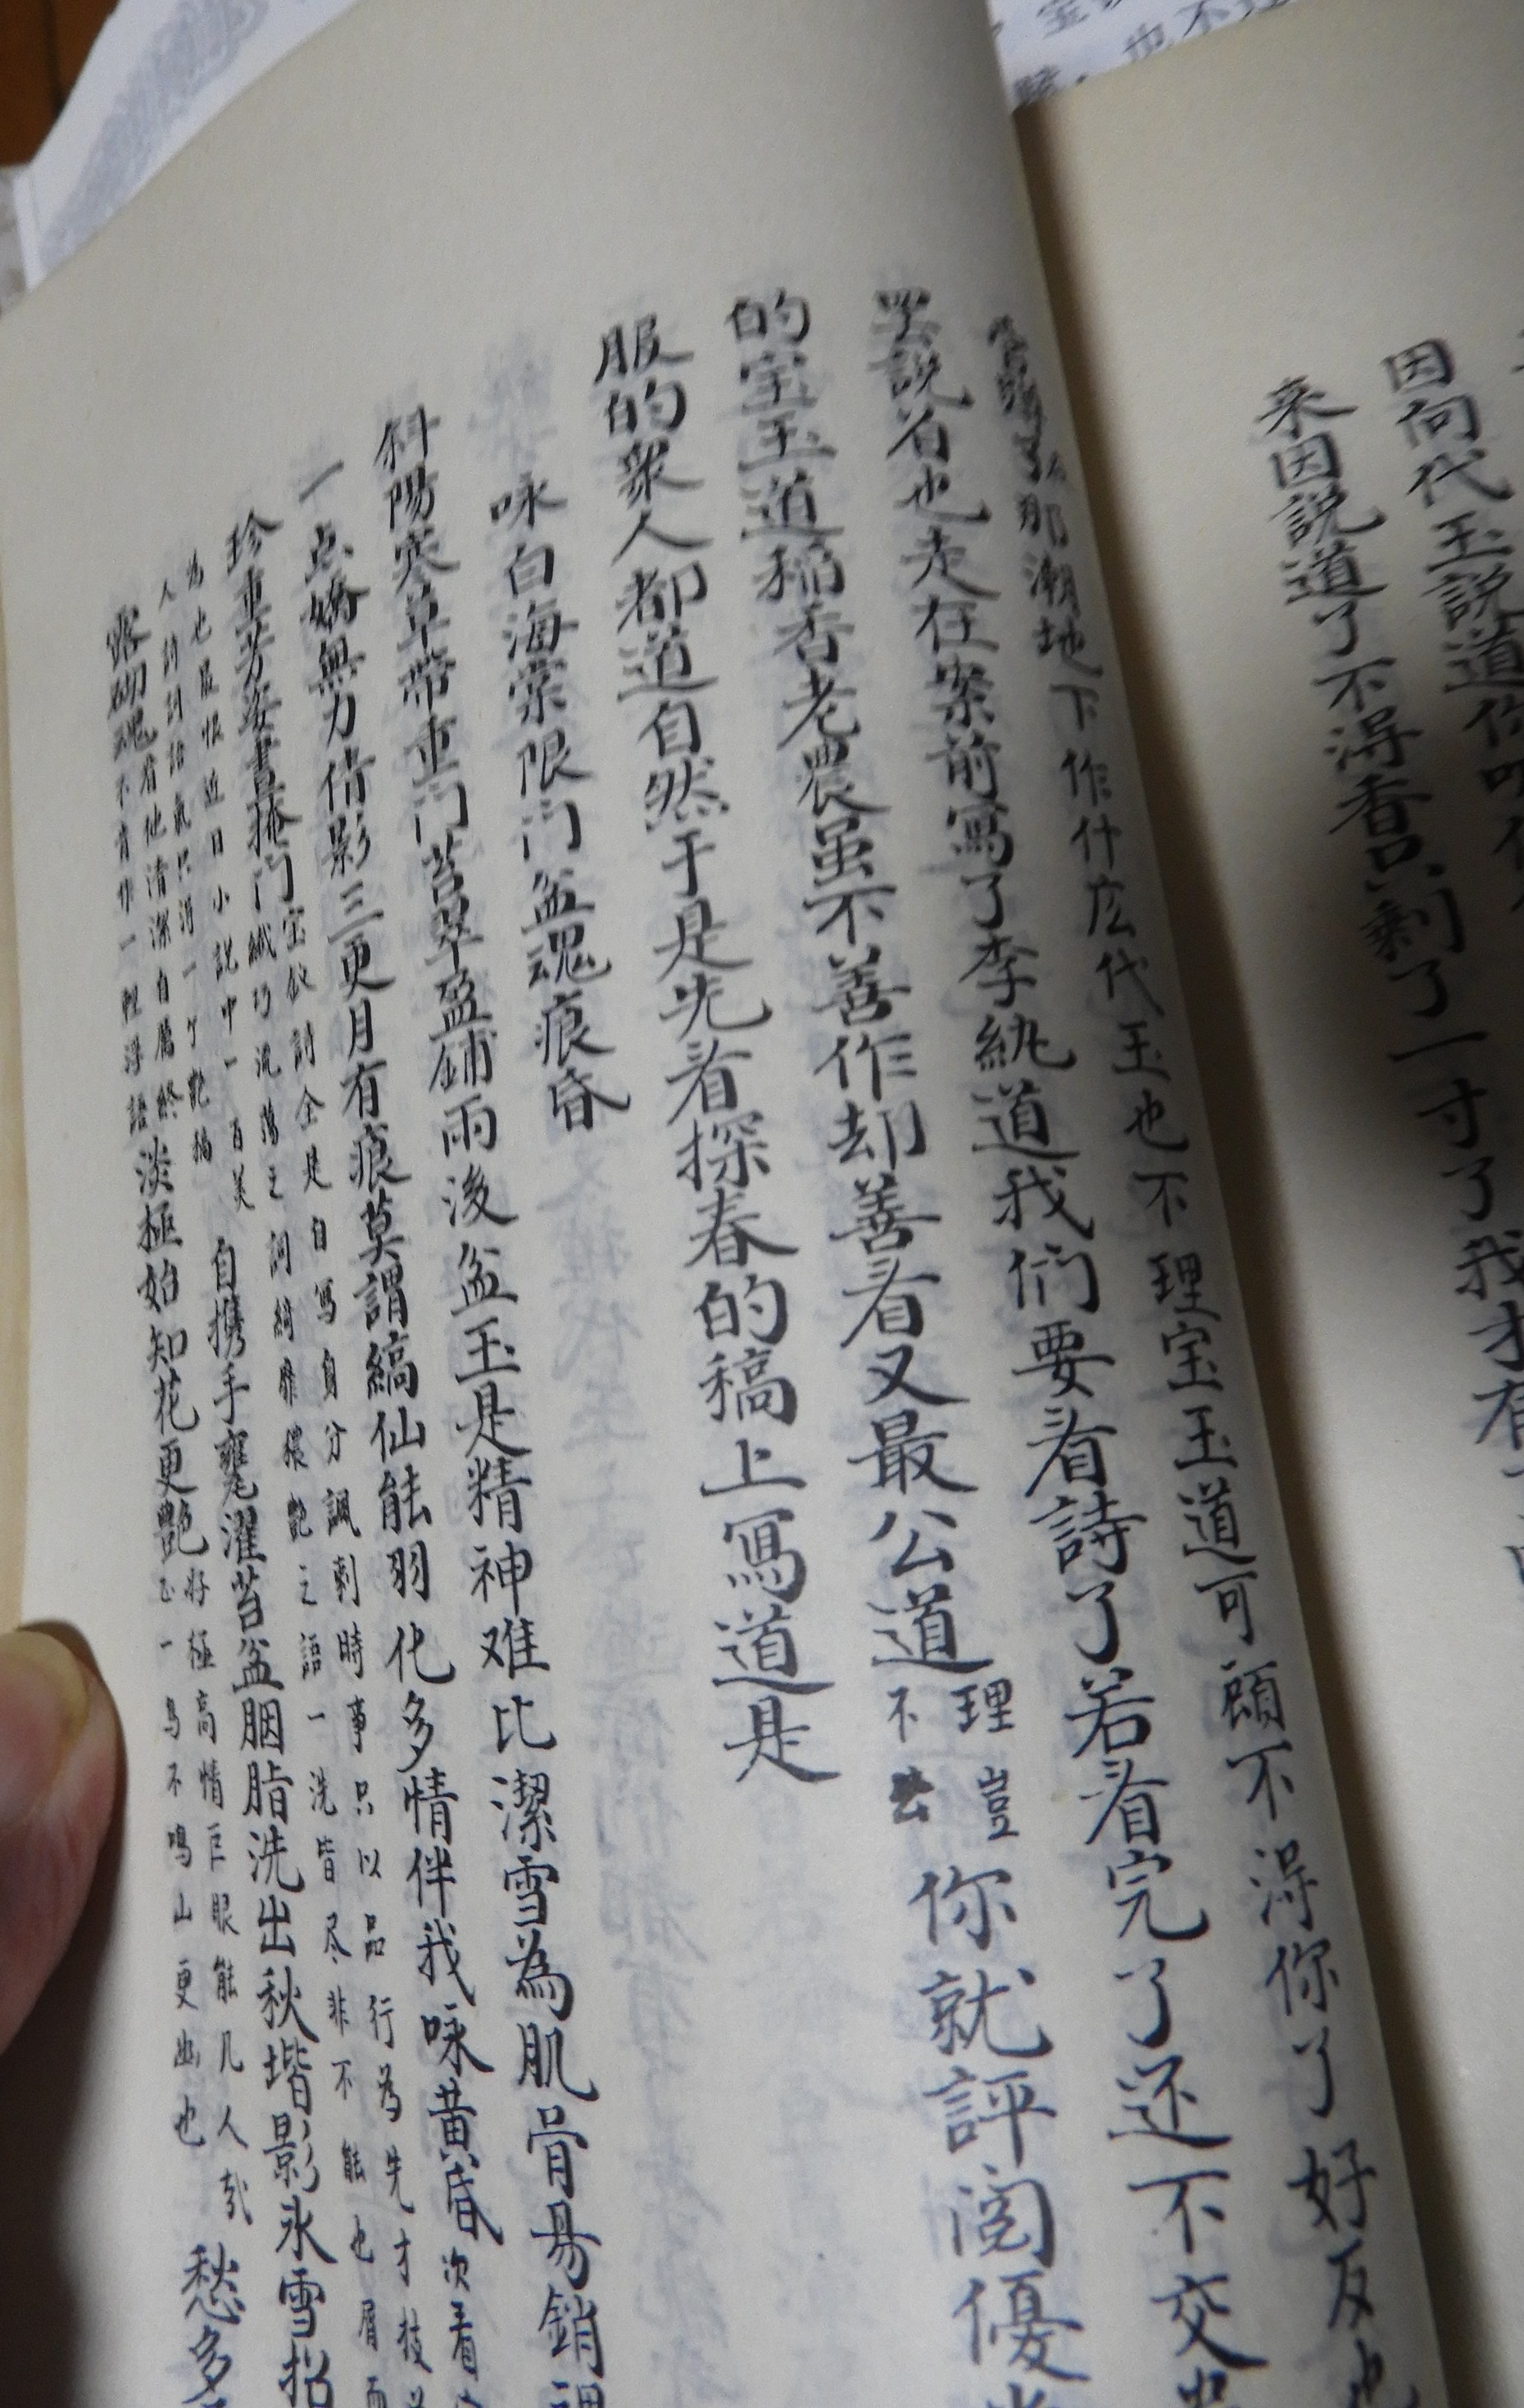 因向代玉説道你
来因説道了不得香只剩了一寸了我才有
了你那潮地下作什庅代玉也不理宝玉道可顧不得你了好反也
罢説着也走在案前寫了李紈道我們要看詩了若看完了还不交
的宝玉道稲香老農虽不善作却善看又最公道你就評閲優
理豈
不去
服的衆人都道自然于是先看探春的稿上寫道是
咏白海棠限门盆魂痕昏
斜陽寒草帶重门苔翠盈鋪雨後盆玉是精神难比潔雪為肌骨易銷
一点嬌無力倩影三更月有痕莫謂縞仙能羽化多情伴我咏黄昏
次看
珍重芳姿晝掩门
宝釵詩全是自寫身分諷刺時事只以品行為先才技
纎巧流蕩之詞綺靡穠艶之語一洗皆尽非不能也屑而
自携手甕灌苔盆胭脂洗出秋堦影氷雪招
為也最恨近日小説中一百美
人詩詞語氣只得一个艶稿
露砌魂
看他清潔自厲終
不肯作一輕浮語
淡極始知花更艶
好極高情巨眼能几人哉
正一鳥不鳴山更幽也
愁多